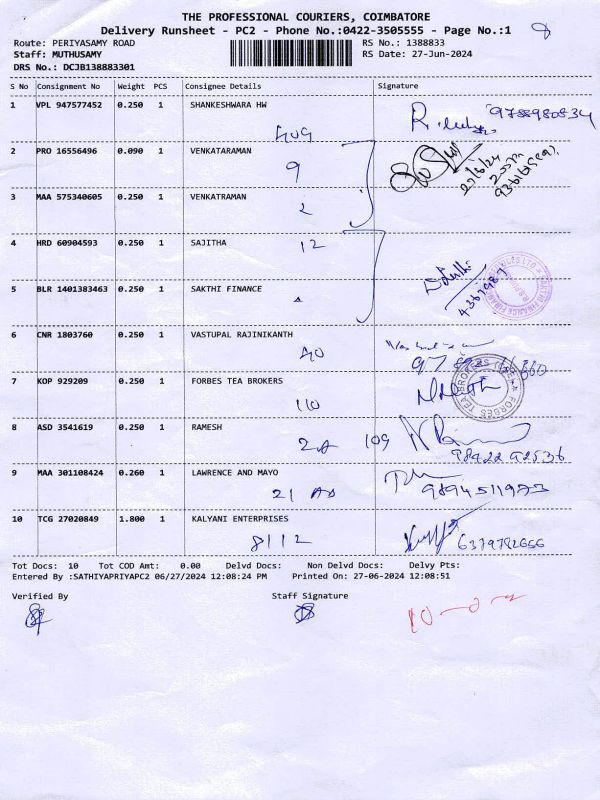 THE PROFESSIONAL COURIERS, COIMBATORE
Delivery Runsheet - PC2 - Phone No.:0422-3505555 - Page No.:1
8
Route: PERIYASAMY ROAD
RS No.: 1388833
Staff: MUTHUSAMY
RS Date: 27-Jun-2024
DRS No.: DCJB138883301
S No Consignment No Weight PCS Consignee Details Signature
1 VPL 947577452 0.250 1 SHANKESHWARA HW
2 PRO 16556496 0.090 1 VENKATARAMAN
9
27/6/24
3 MAA 575340605 0.250 1 VENKATRAMAN
2
4 HRD 60904593 0.250 1 SAJITHA 12
5 BLR 1401383463 0.250 1 SAKTHI FINANCE
6 CNR 1803760 0.250 1 VASTUPAL RAJINIKANTH
40
7 KOP 929209 0.250 1 FORBES TEA BROKERS
110
FORBES TEA BROKERS
8 ASD 3541619 0.250 1 RAMESH
109
98422 92536
9 MAA 301108424 0.260 1 LAWRENCE AND MAYO
21
10 TCG 27020849 1.800 1 KALYANI ENTERPRISES
8112
6379792666
Tot Docs: 10 Tot COD Amt: 0.00 Delvd Docs: Non Delvd Docs: Delvy Pts:
Entered By :SATHIYAPRIYAPC2 06/27/2024 12:08:24 PM Printed On: 27-06-2024 12:08:51
Verified By Staff Signature